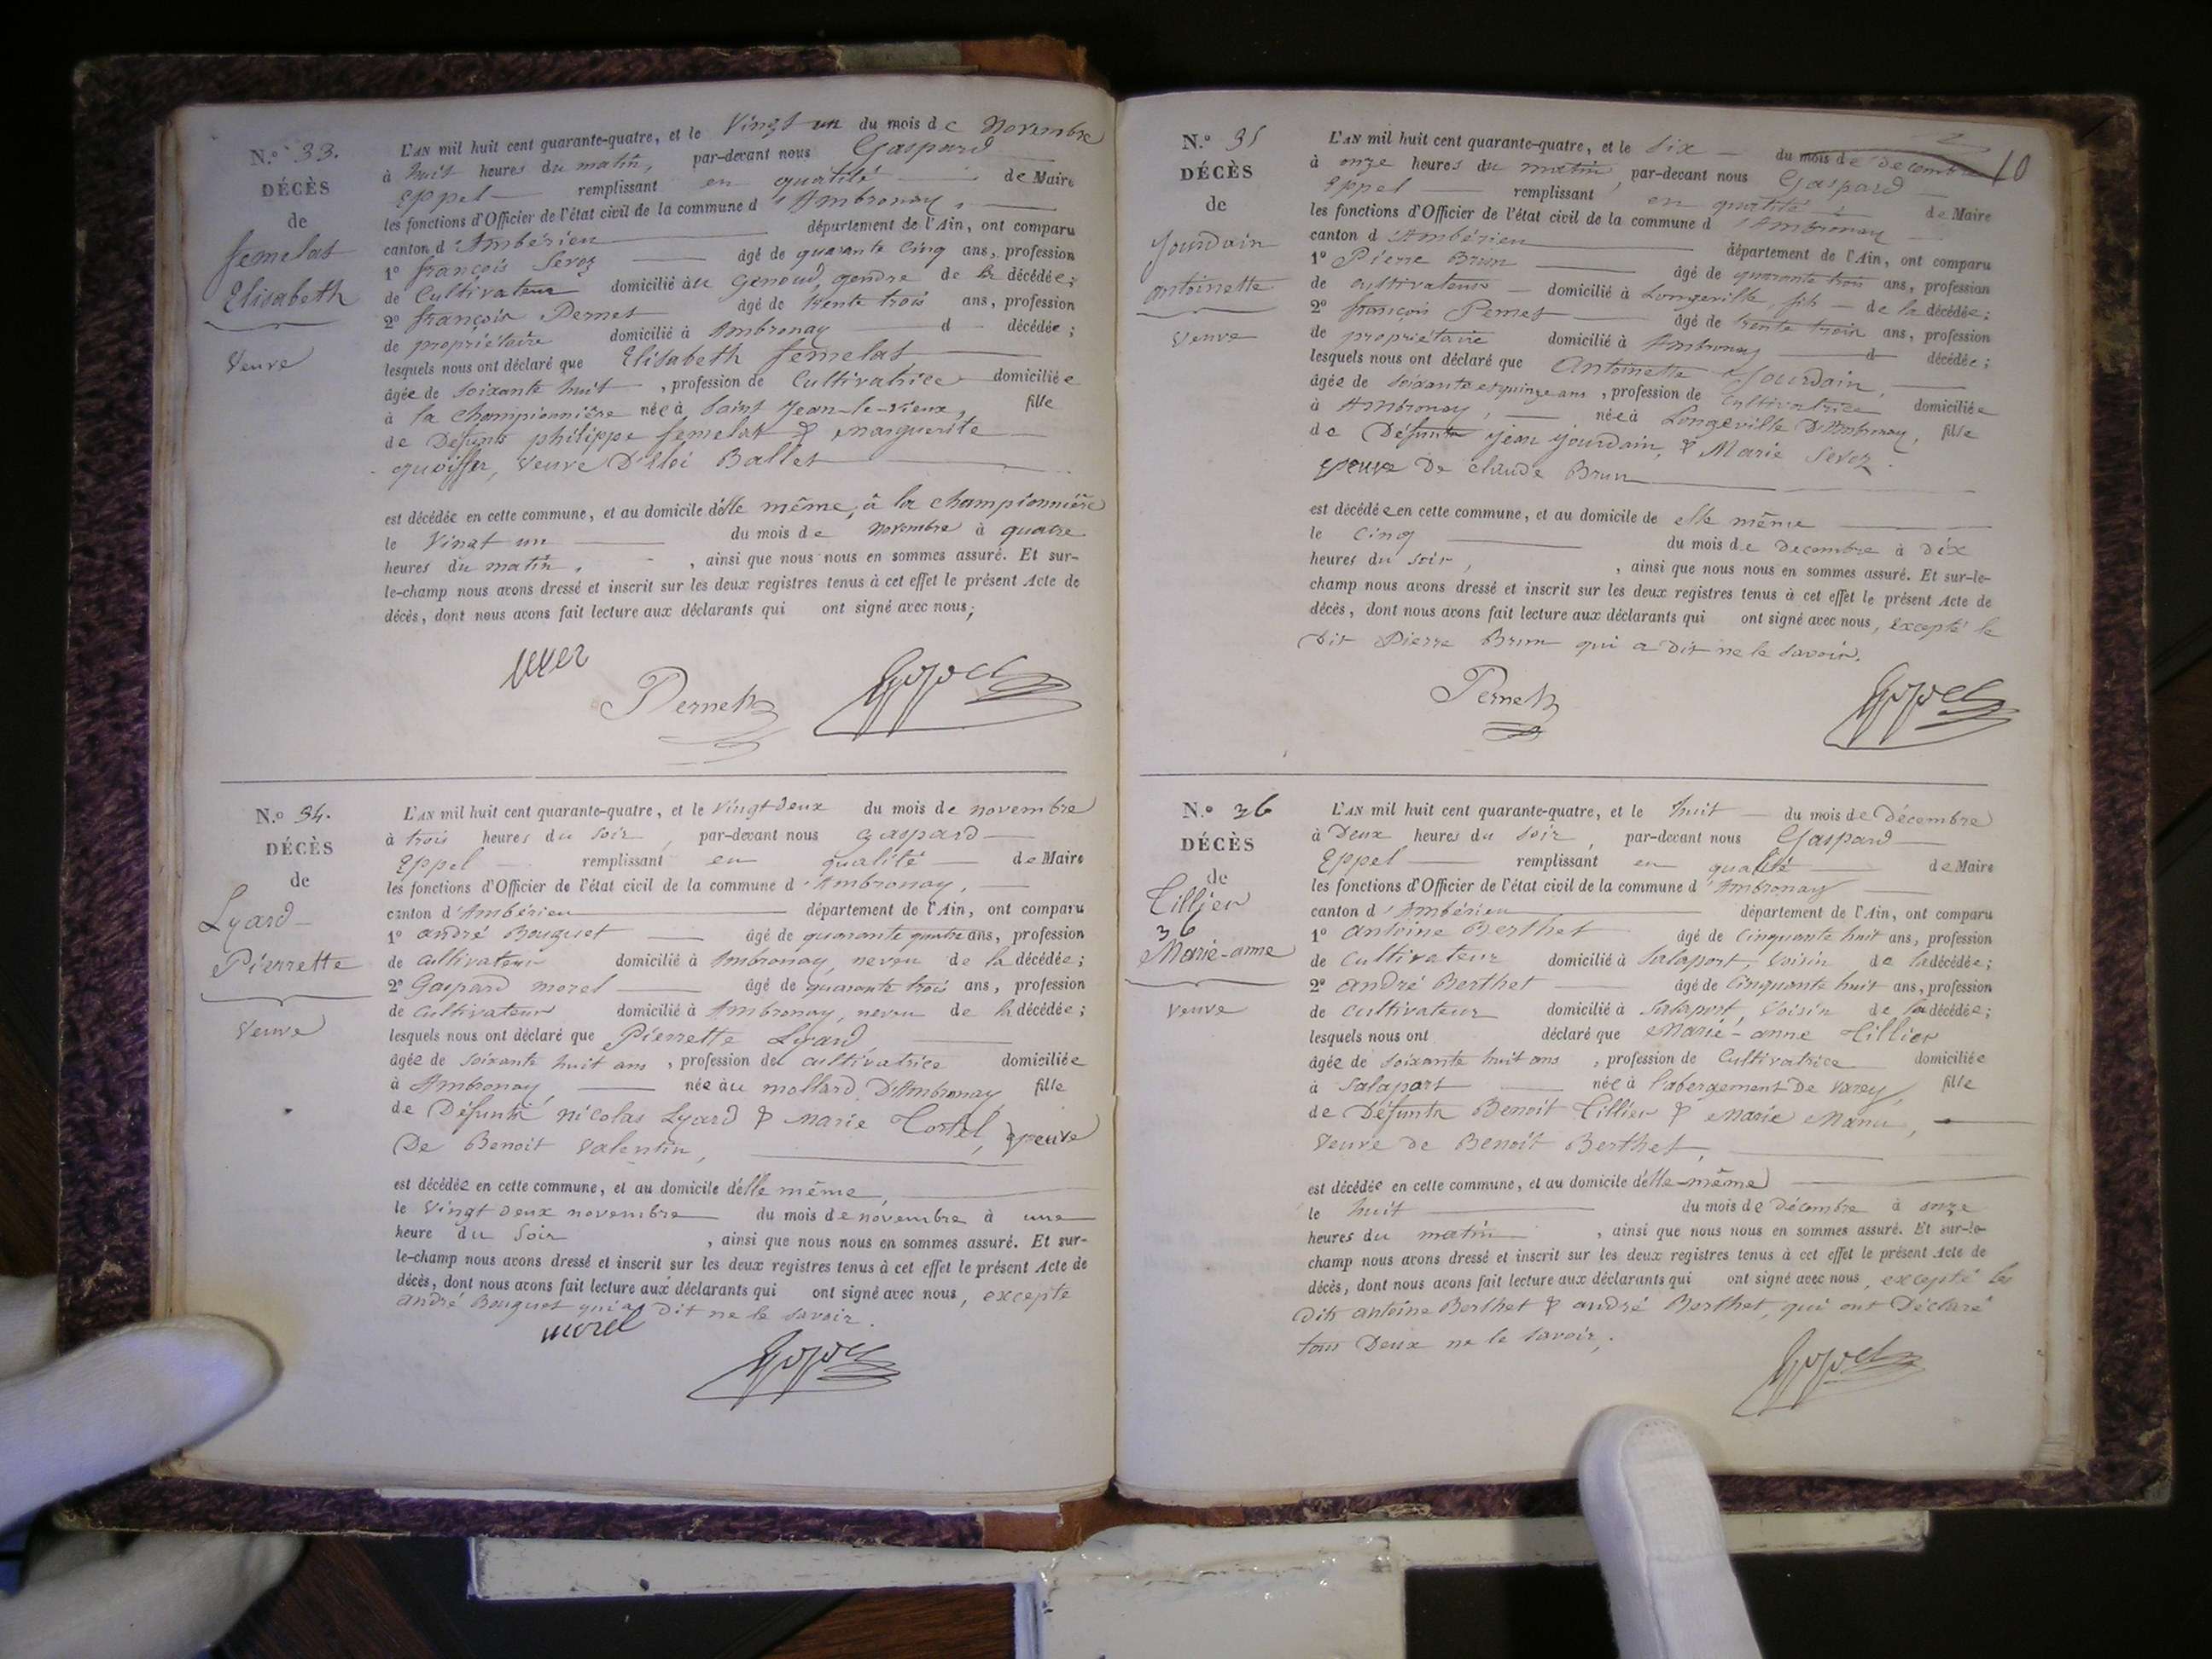 N.° 33.
DÉCÈS
de
femelat
Elisabeth
Veuve
L'AN mil huit cent quarante-quatre, et le Vingt un du mois de Novembre
à huit heures du matin, par-devant nous Gaspard
Eppel remplissant en qualité de Maire
les fonctions d'Officier de l'état civil de la commune d'Ambronay,
canton d'Ambérieu département de l'Ain, ont comparu
1° françois Sevoz âgé de quarante Cinq ans, profession
de Cultivateur domicilié au Genoud, gendre de la décédée;
2° françois Pernet âgé de trente trois ans, profession
de propriétaire domicilié à Ambronay d décédée;
lesquels nous ont déclaré que Elisabeth femelat
âgée de soixante huit, profession de Cultivatrice domiciliée
à la Championnière née à Saint Jean-le-Vieux, fille
de Défunts philippe femelat & marguerite
veuve D'Eloi Ballet
est décédée en cette commune, et au domicile d'elle même, à la Championnière
le Vingt un du mois de novembre à quatre
heures du matin, , ainsi que nous nous en sommes assuré. Et sur-
le-champ nous avons dressé et inscrit sur les deux registres tenus à cet effet le présent Acte de
décès, dont nous avons fait lecture aux déclarants qui ont signé avec nous;
Pernet
N.° 34.
DÉCÈS
de
Lyard
Pierrette
Veuve
L'AN mil huit cent quarante-quatre, et le Vingt deux du mois de novembre
à trois heures du soir, par-devant nous Gaspard
Eppel remplissant en qualité de Maire
les fonctions d'Officier de l'état civil de la commune d'Ambronay,
canton d'Ambérieu département de l'Ain, ont comparu
1° andré Bouguet âgé de quarante quatre ans, profession
de Cultivateur domicilié à Ambronay, neveu de la décédée;
2° Gaspard morel âgé de quarante trois ans, profession
de Cultivateur domicilié à Ambronay, neveu de la décédée;
lesquels nous ont déclaré que Pierrette Lyard
âgée de soixante huit ans, profession de cultivatrice domiciliée
à Ambronay, née au mollard D'Ambronay fille
de Défunts nicolas Lyard & marie Tortel, veuve
De Benoit Valentin,
est décédée en cette commune, et au domicile d'elle même,
le Vingt deux novembre du mois de novembre à une
heure du Soir , ainsi que nous nous en sommes assuré. Et sur-
le-champ nous avons dressé et inscrit sur les deux registres tenus à cet effet le présent Acte de
décès, dont nous avons fait lecture aux déclarants qui ont signé avec nous, excepté
andré Bouguet qui a Dit ne le savoir.
morel
10
N.° 35
DÉCÈS
de
Jourdain
antoinette
Veuve
L'AN mil huit cent quarante-quatre, et le six du mois de décembre
à onze heures du matin, par-devant nous Gaspard
Eppel remplissant en qualité de Maire
les fonctions d'Officier de l'état civil de la commune d'Ambronay
canton d'Ambérieu département de l'Ain, ont comparu
1° Pierre Brun âgé de quarante trois ans, profession
de cultivateur domicilié à Longeville, fils de la décédée;
2° françois Pernet âgé de trente trois ans, profession
de propriétaire domicilié à Ambronay d décédée;
lesquels nous ont déclaré que Antoinette Jourdain,
âgée de soixante et quinze ans, profession de Cultivatrice domiciliée
à Ambronay, née à Longeville D'Ambronay, fille
de Défunts jean jourdain, & Marie Sevoz.
veuve De claude Brun
est décédée en cette commune, et au domicile de elle même
le Cinq du mois de decembre à dix
heures du soir, , ainsi que nous nous en sommes assuré. Et sur-le-
champ nous avons dressé et inscrit sur les deux registres tenus à cet effet le présent Acte de
décès, dont nous avons fait lecture aux déclarants qui ont signé avec nous, excepté le
Dit Pierre Brun qui a Dit ne le savoir.
Pernet
N.° 36
DÉCÈS
de
Tillier
36
Marie-anne
Veuve
L'AN mil huit cent quarante-quatre, et le huit du mois de Décembre
à Deux heures du soir, par-devant nous Gaspard
Eppel remplissant en qualité de Maire
les fonctions d'Officier de l'état civil de la commune d'Ambronay
canton d'Ambérieu département de l'Ain, ont comparu
1° antoine Berthet âgé de Cinquante huit ans, profession
de Cultivateur domicilié à Salaport, Voisin de la décédée;
2° andré Berthet âgé de Cinquante huit ans, profession
de Cultivateur domicilié à Salaport, Voisin de la décédée;
lesquels nous ont déclaré que Marie-anne Tillier
âgée de soixante huit ans, profession de Cultivatrice domiciliée
à Salaport née à l'abergement De varey, fille
de Défunts Benoit Tillier & Marie Manu,
Veuve de Benoit Berthet,
est décédée en cette commune, et au domicile d'elle même
le huit du mois de Décembre à onze
heures du matin , ainsi que nous nous en sommes assuré. Et sur-le-
champ nous avons dressé et inscrit sur les deux registres tenus à cet effet le présent Acte de
décès, dont nous avons fait lecture aux déclarants qui ont signé avec nous, excepté les
Dits antoine Berthet & andré Berthet, qui ont Déclaré
tous Deux ne le savoir,